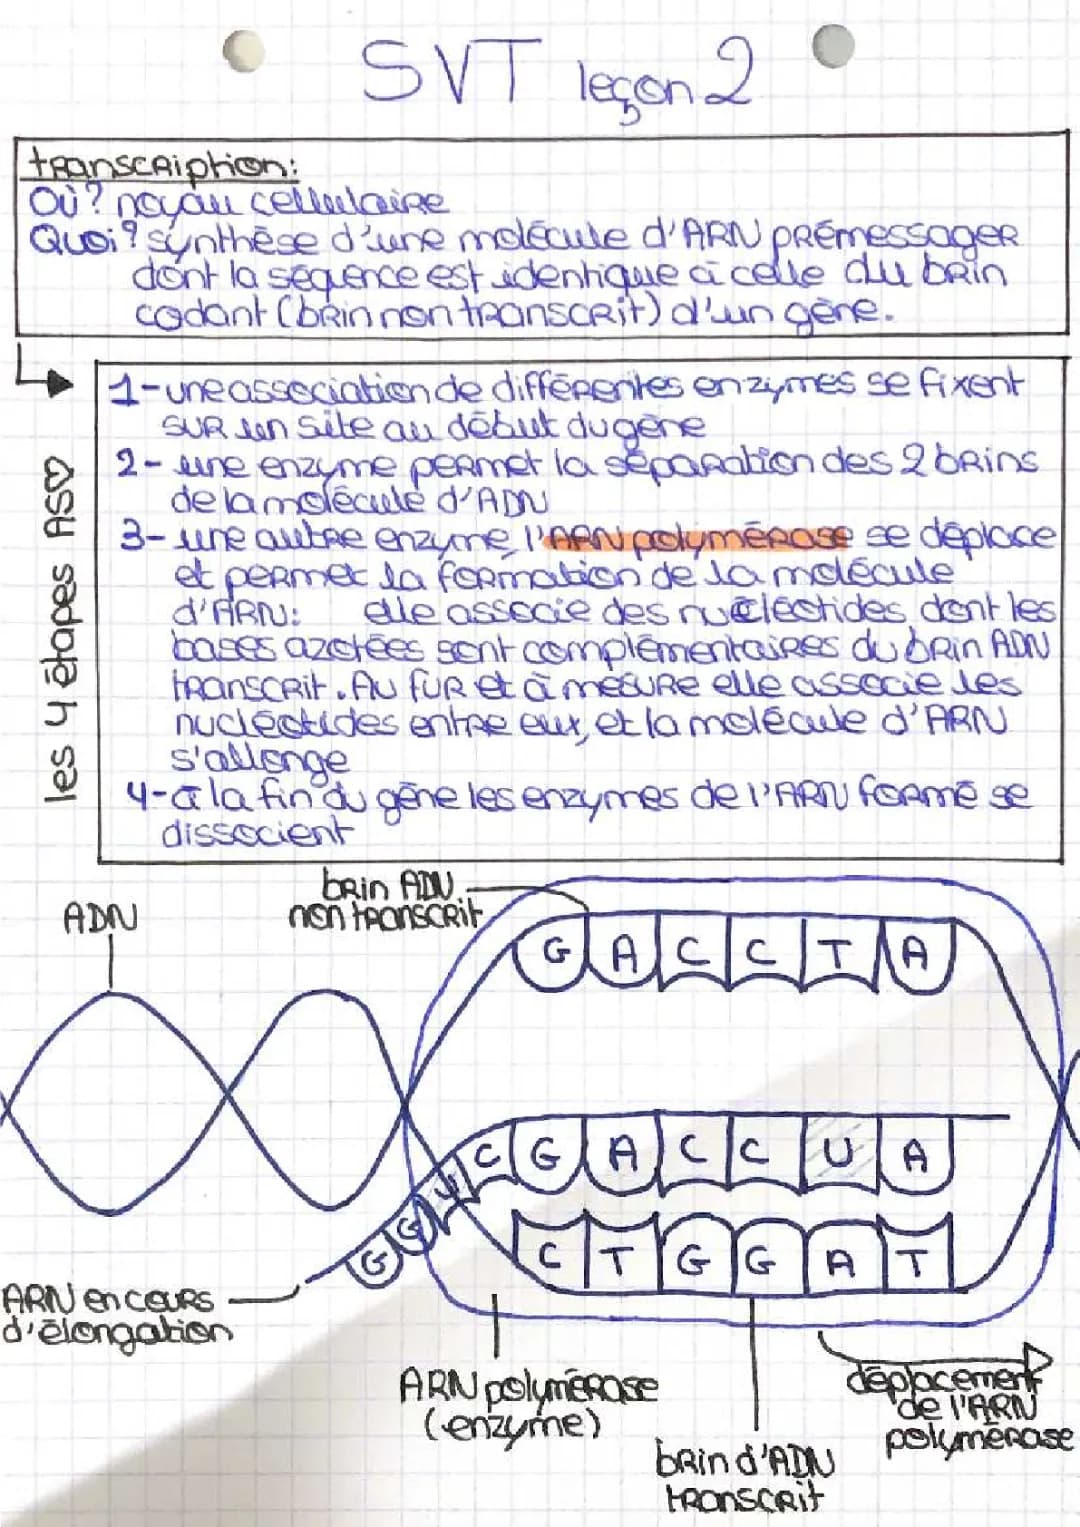 SVT leçon 2
transcription:
Où? noyau cellulaire
Quoi? synthèse d'une molécule d'ARN prémessager
dont la séquence est identique à celle du brin
codant (brin non transcrit) d'un gène.
1- une association de différentes enzymes se fixent
sur un site au début du gène
2- une enzyme permet la séparation des 2 brins
de la molécule d'ADN
3- une autre enzyme, l'ARN polymérase se déplace
et permet la formation de la molécule
d'ARN: elle associe des nucléotides, dont les
bases azotées sont complémentaires du brin ADN
transcrit. Au fur et à mesure elle associe les
nucléotides entre eux, et la molécule d'ARN
s'allonge
4- à la fin du gène les enzymes de l'ARN formé se
dissocient
les 4 étapes AS♡
brin ADN
non transcrit
ADN
G A C C T A
G G U C G A C C U A
C T G G A T
ARN en cours
d'élongation
ARN polymérase
(enzyme)
déplacement
de l'ARN
polymérase
brin d'ADN
transcrit